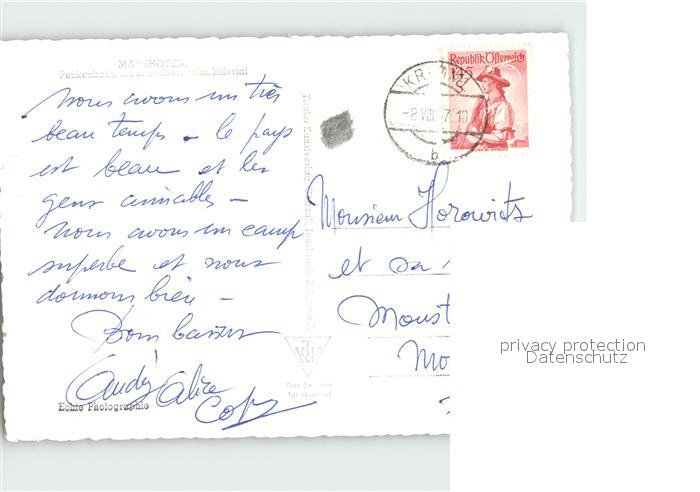 MAYRHOFEN,
Penkenbahn Zillertal
Nous avons un très
beau temps – le pays
est beau et les
gens aimables –
Nous avons un camp
superbe et nous
dormons bien –
Bons baisers
Andy Alice
Echte Photographie
Das Zeichen
für Qualität
Republik Österreich
-8.VIII. 57.10
b
Monsieur Horowitz
et sa
Moust
Mo
privacy protection
Datenschutz